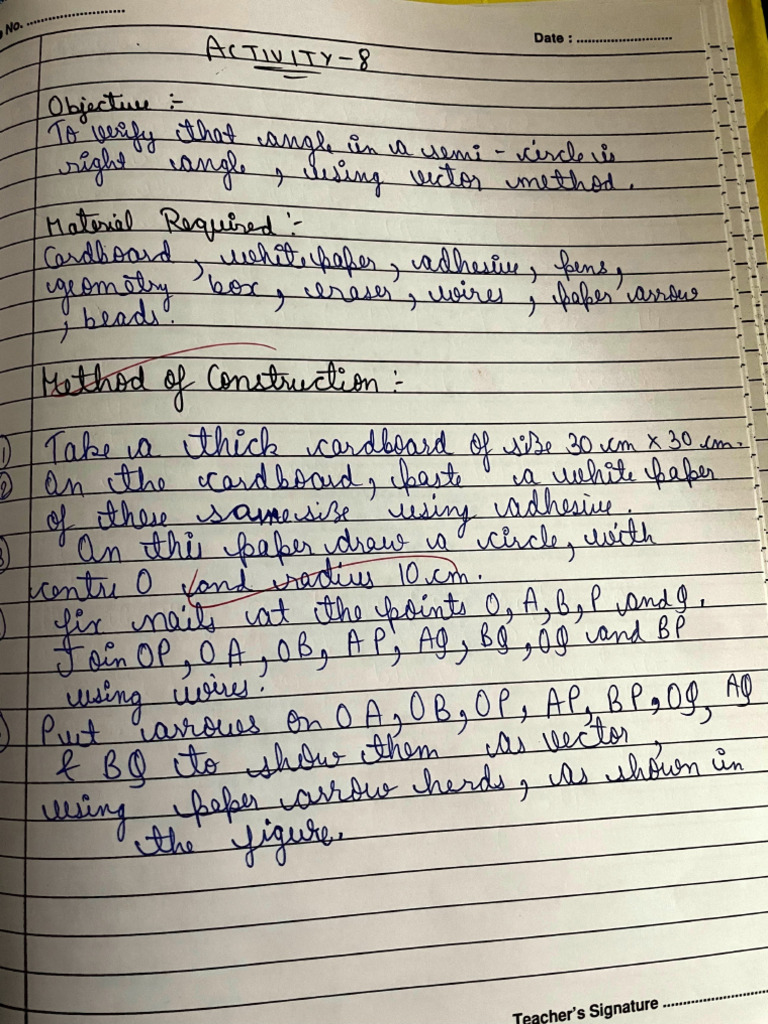 No. ..............................
Date : ..........................
ACTIVITY-8
Objective :-
To verify that angle in a semi-circle is
right angle, using vector method.
Material Required :-
Cardboard, white paper, adhesive, pens,
geometry box, eraser, wires, paper arrow
, beads.
Method of Construction :-
① Take a thick cardboard of size 30 cm x 30 cm.
② On the cardboard, paste a white paper
of these same size using adhesive.
On this paper draw a circle, with
centre O and radius 10 cm.
fix nails at the points O, A, B, P and Q.
Join OP, OA, OB, AP, AQ, BQ, OQ and BP
using wires.
Put arrows on OA, OB, OP, AP, BP, OQ, AQ
& BQ to show them as vector,
using paper arrow herds, as shown in
the figure.
Teacher's Signature ........................